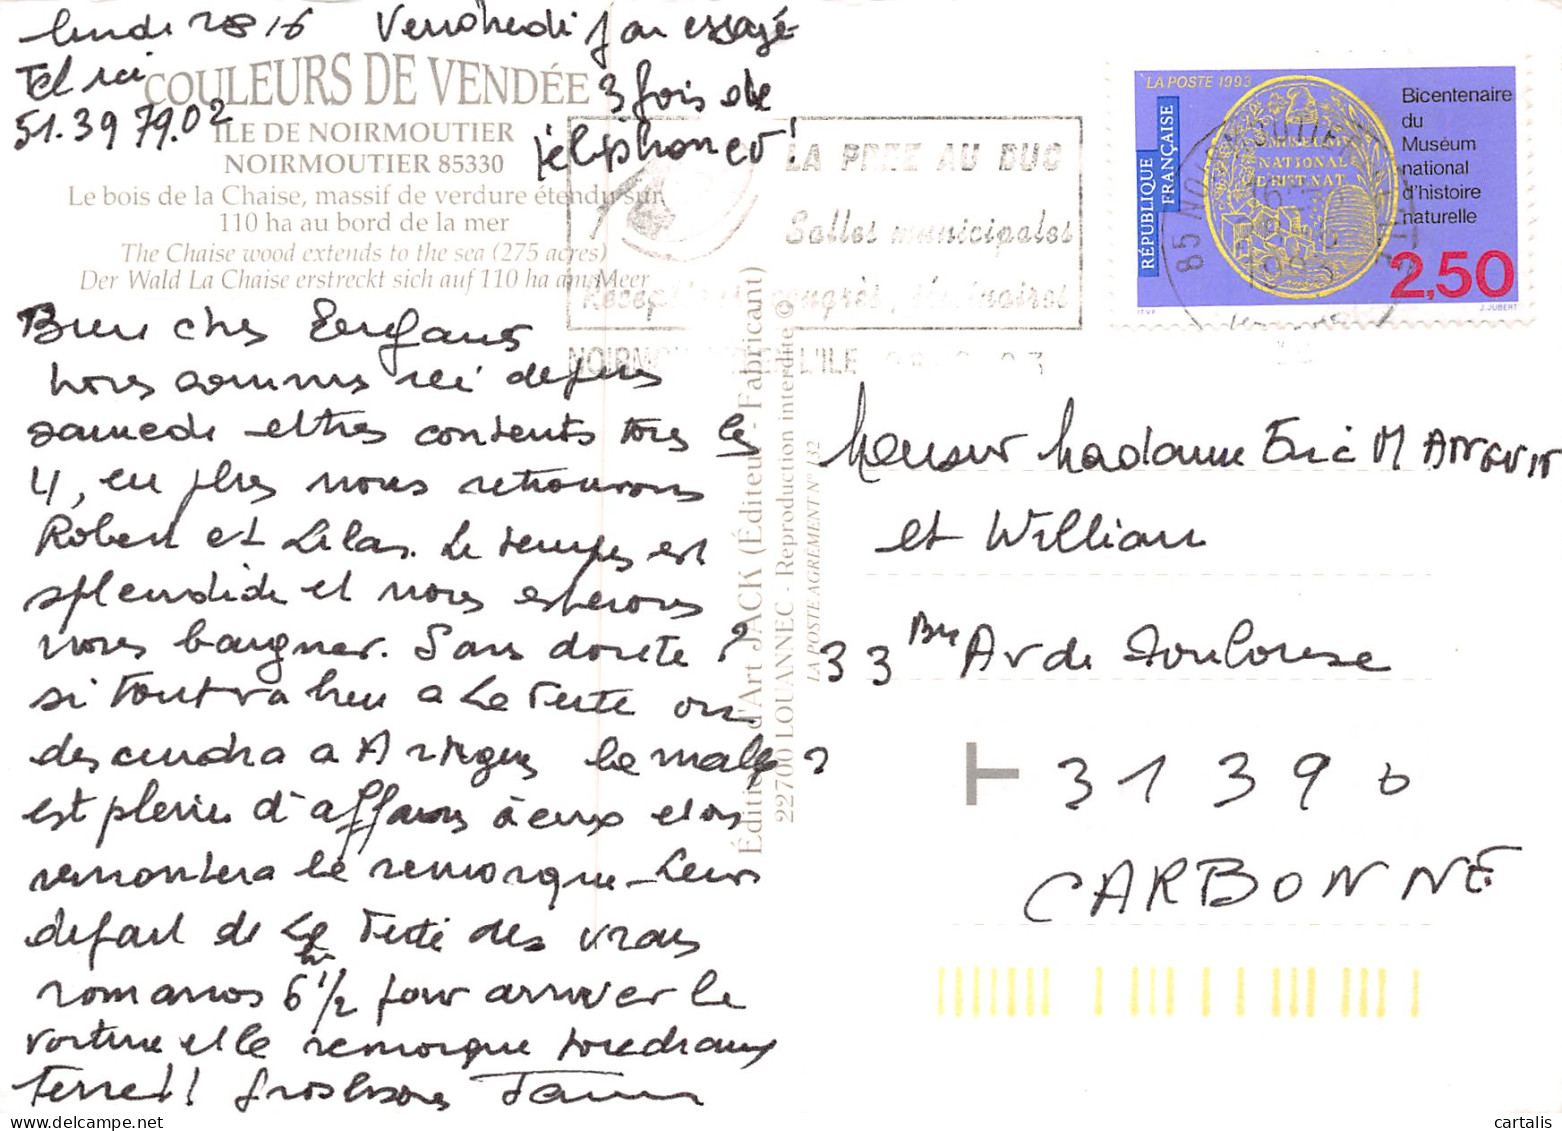 lundi 28 16 Vendredi j'ai essayé
Tel ici
51.39 79.02
3 fois de
téléphoner !
COULEURS DE VENDÉE
ILE DE NOIRMOUTIER
NOIRMOUTIER 85330
Le bois de la Chaise, massif de verdure étendu sur
110 ha au bord de la mer
The Chaise wood extends to the sea (275 acres)
Der Wald La Chaise erstreckt sich auf 110 ha am Meer
Bien chers Enfants
nous sommes ici depuis
samedi et très contents tous les
4, en plus nous retrouvons
Robert et Lilas. Le temps est
splendide et nous espérons
nous baigner. Sans doute ?
si tout va bien a Le Teste on
descendra a
est pleine d'affaires à eux et on
remontera le remorque - Leur
départ de Le Teste des vrais
romanos 6 h 1/2 pour arriver le
voiture et le remorque
Terre!! Gros bisous
LA PREE AU DUC
Salles municipales
NOIRMOUTIER EN L'ILE
LA POSTE 1993
RÉPUBLIQUE
FRANÇAISE
MUSEUM
NATIONAL
D'HIST. NAT.
Bicentenaire
du
Muséum
national
d'histoire
naturelle
2,50
ITVF
J. JUBERT
85 NOIRMOUTIER
1993
Édition d'Art JACK (Éditeur - Fabricant)
22700 LOUANNEC - Reproduction interdite ©
LA POSTE AGRÉMENT N° 132
Monsieur Madame Eric MANGUIN
et William
33 Bis Av de Toulouse
31390
CARBONNE
cartalis
www.delcampe.net